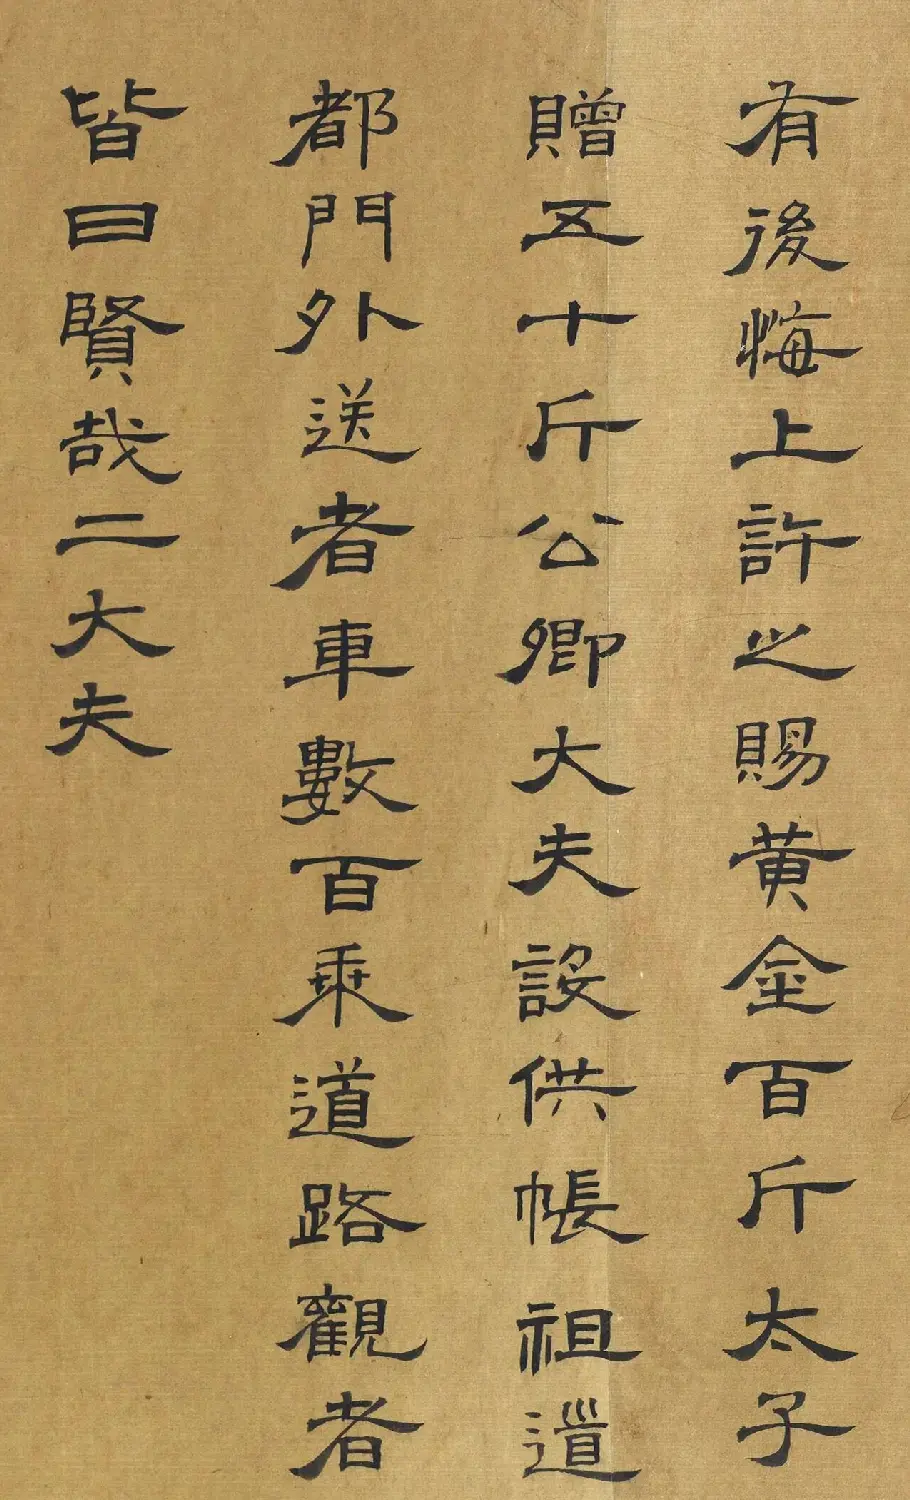 有後悔上許之賜黄金百斤太子
贈五十斤公卿大夫設供帳祖道
都門外送者車數百乘道路觀者
皆曰賢哉二大夫